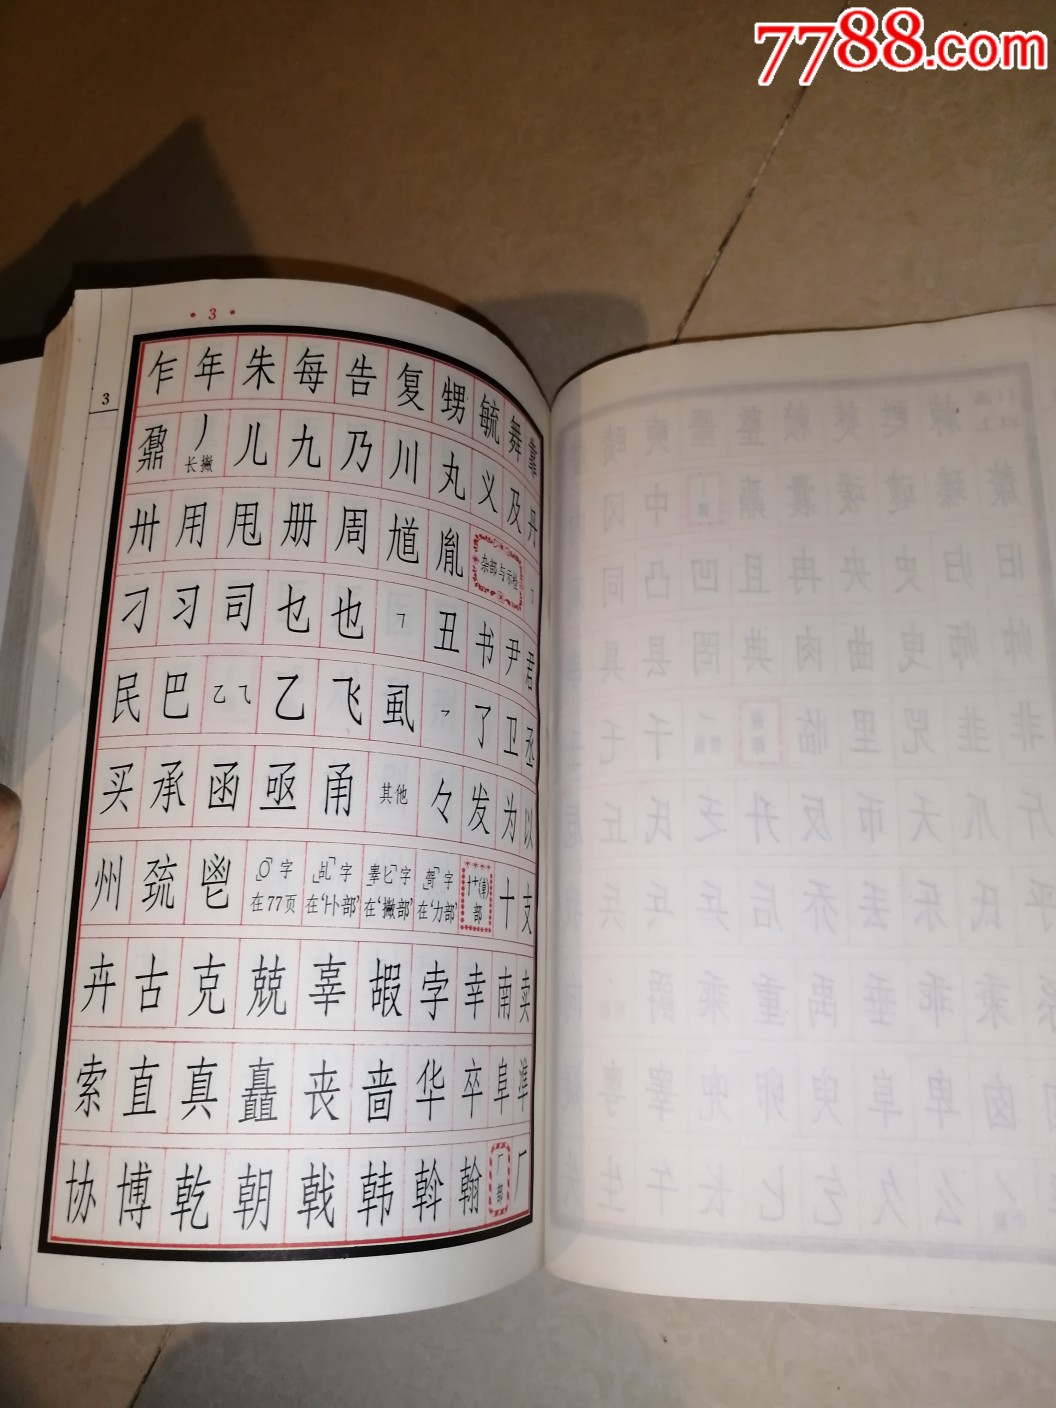 7788.com
·3·
3
乍 年 朱 每 告 复 甥 毓 舞 靠
鼐 丿长撇 儿 九 乃 川 丸 义 及 丹
卅 用 甩 册 周 馗 胤 杂部与示检
刁 习 司 乜 也 ㄱ 丑 书 尹 君
民 巴 乙乁 乙 飞 虱 乛 了 卫 丞
买 承 函 亟 甬 其他 々 发 为 以
州 巯 鬯 字在77页 字在'卜部' 字在'撇部' 字在'力部' 十部 十 支
卉 古 克 兢 辜 嘏 孛 幸 南 卖
索 直 真 矗 丧 啬 华 卒 阜 準
协 博 乾 朝 戟 韩 斡 翰 厂部 厂